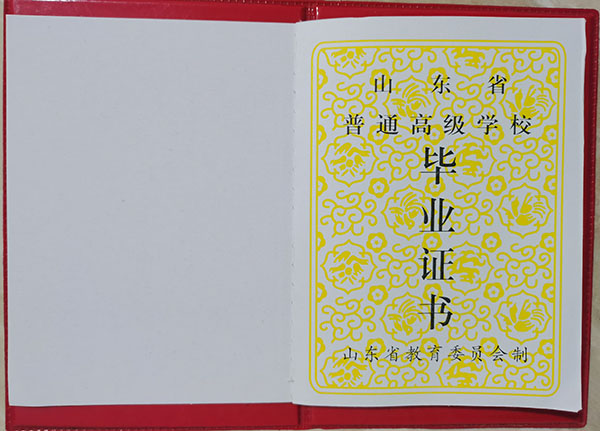 山东省
普通高级学校
毕业证书
山东省教育委员会制